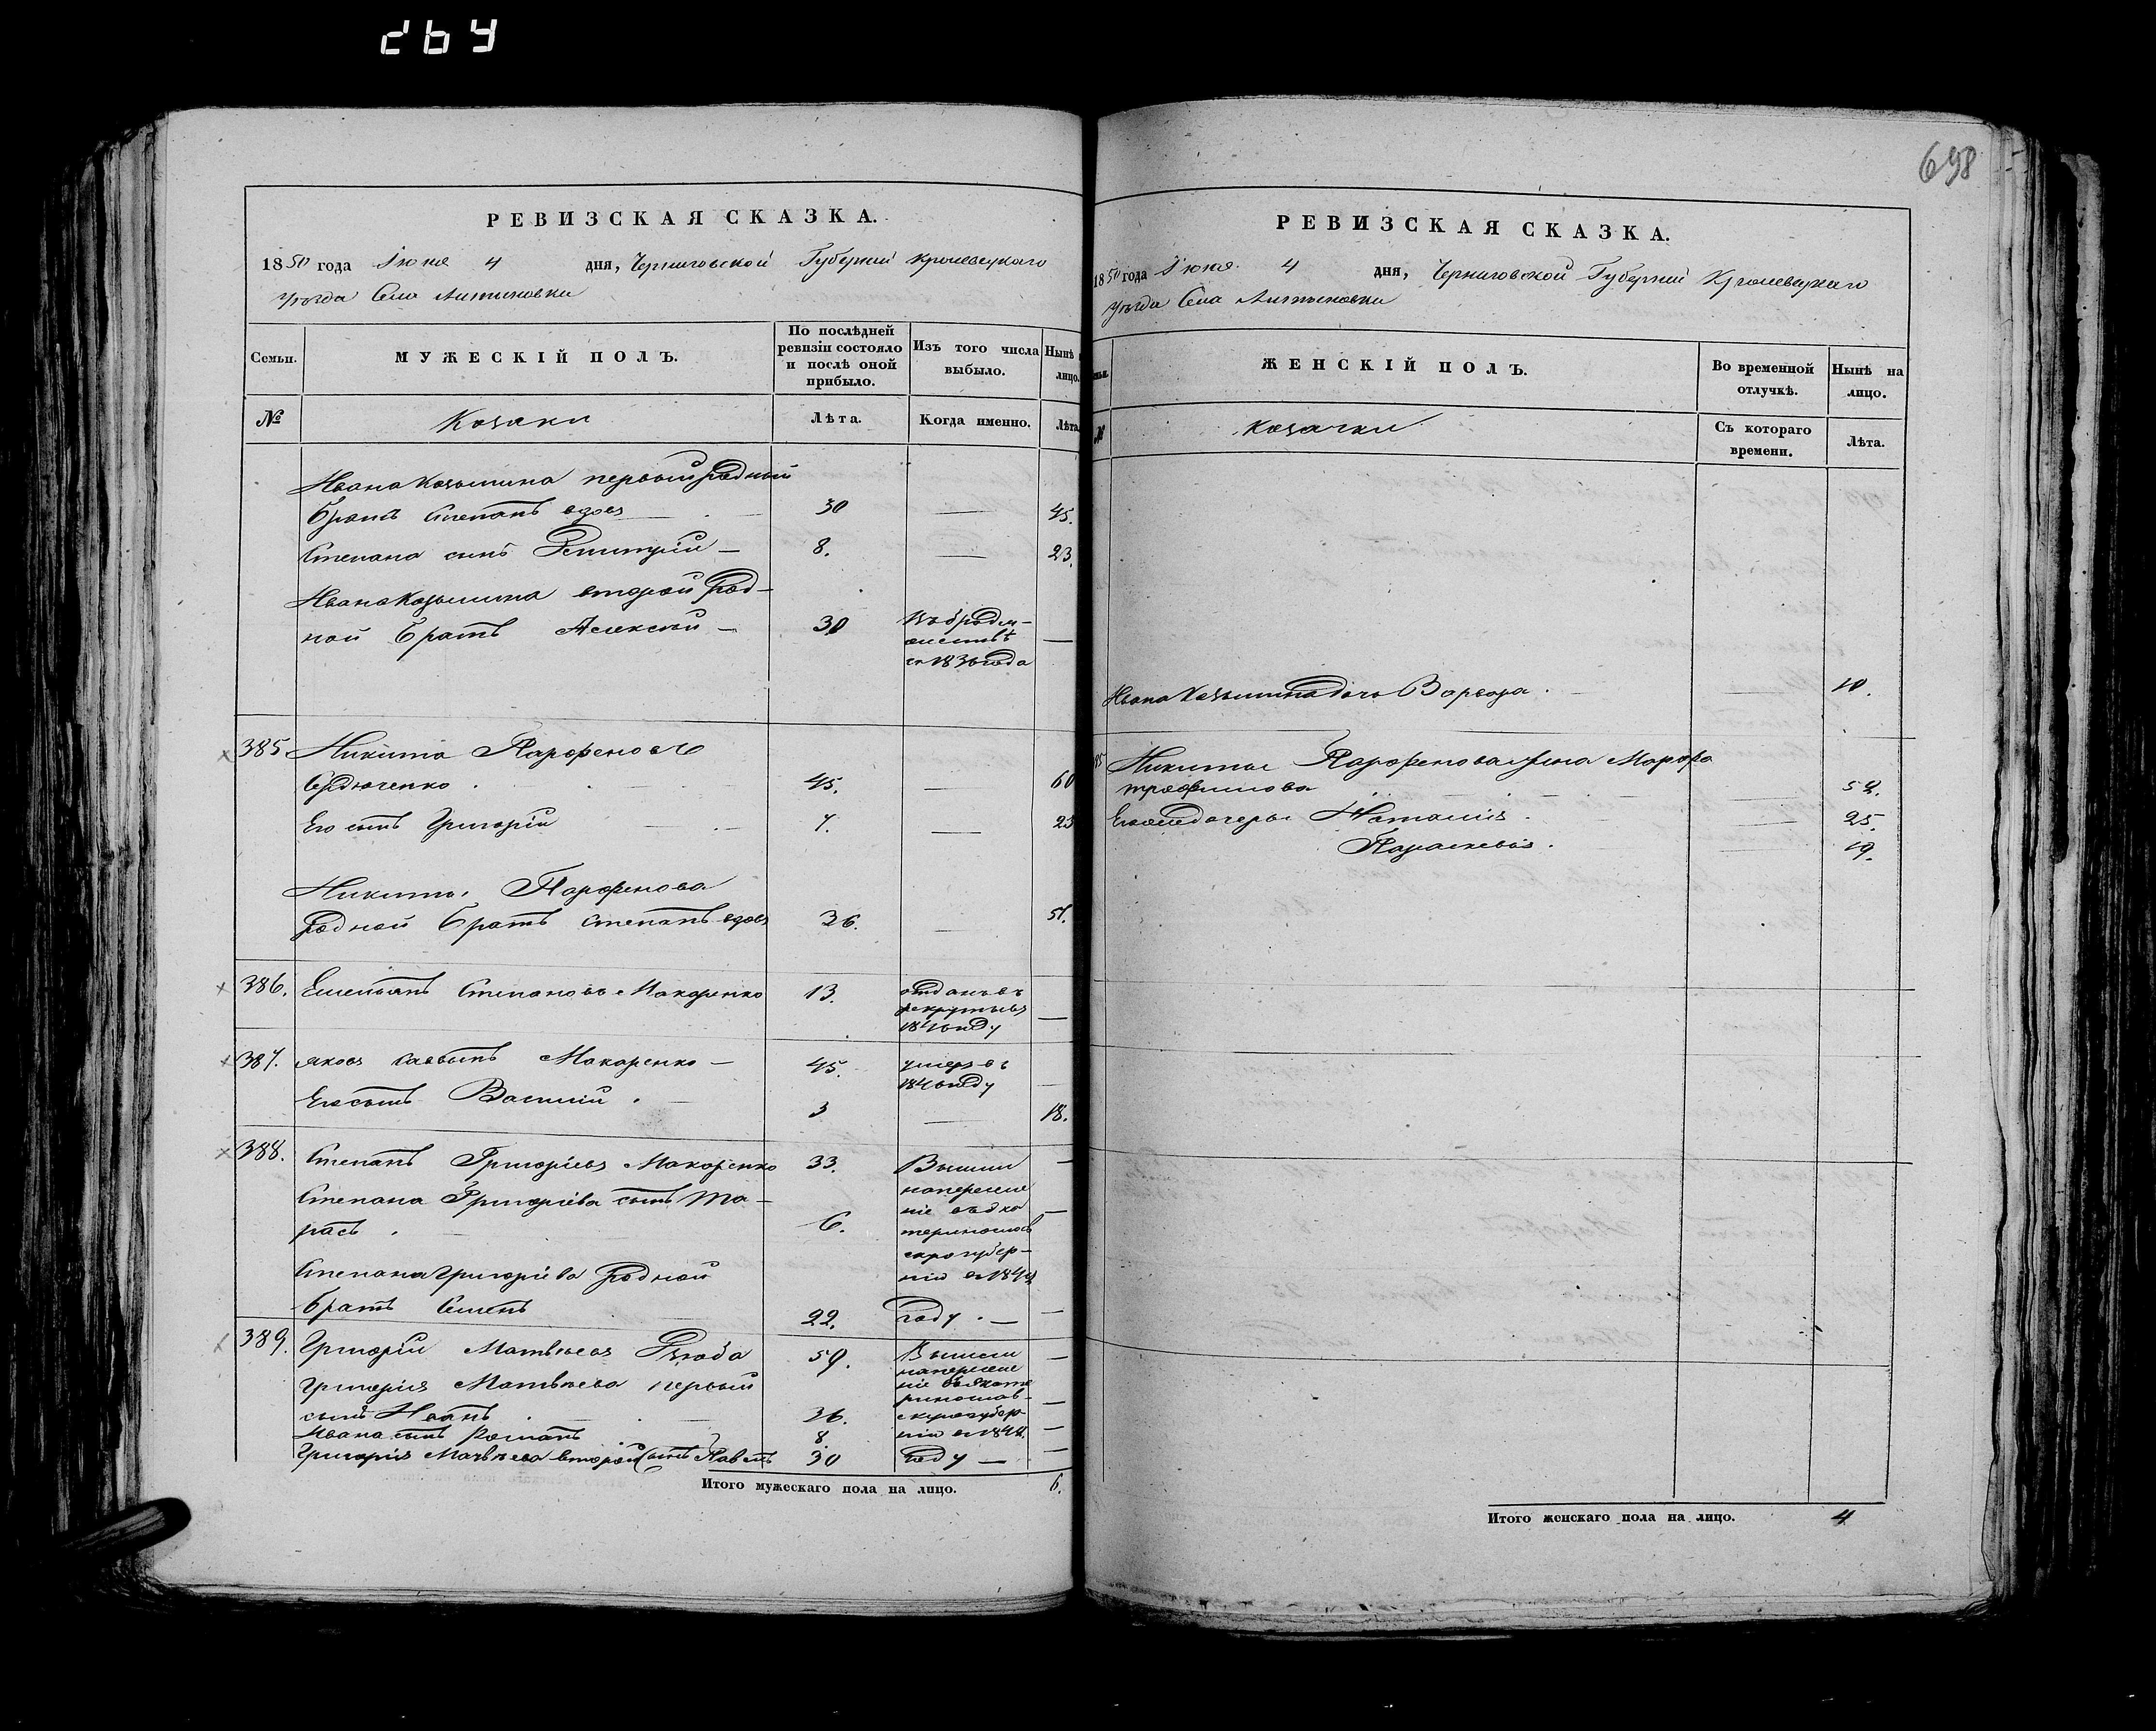 698
РЕВИЗСКАЯ СКАЗКА.
1850 года Іюня 4 дня, Черниговской Губерніи Кролевецкаго
уѣзда Села Литвиновки
Семьи.
МУЖЕСКІЙ ПОЛЪ.
По послѣдней ревизіи состояло и послѣ оной прибыло.
Изъ того числа выбыло.
Нынѣ лицо.
№
Козаки
Лѣта.
Когда именно.
Лѣта.
Ивана Козьмина первый родный
братъ Степанъ вдов 30 — 45.
Степана сынъ Дмитрій — 8. — 23.
Ивана Козьмина второй род-
ной братъ Алексѣй — 30 Въ бродя-
жествѣ
съ 1836 года —
385 Никита Парфеновъ
Сердюченко 45. — 60
Его сынъ Григорій 7. — 23
Никиты Парфенова
родной братъ Степанъ вдовъ 36. — 51.
386. Емельянъ Степановъ Макаренко 13. отданъ въ
рекруты въ
184 году —
387. Яковъ Саввинъ Макаренко — 45. умеръ въ
184 году —
Его сынъ Василій 3 — 18.
388. Степанъ Григорьевъ Макаренко 33. Вышли —
Степана Григорьева сынъ Та-
расъ 6. на переселе
ніе въ Ека
теринослав
скую губер-
нію въ 184
Степана Григорьева родной
братъ Семенъ 22. году. —
389. Григорій Матвѣевъ Дзюба 59. Вышли —
Григорія Матвѣева первый
сынъ Иванъ 36. на переселе
ніе въ Екате
ринослав-
скую губер
Ивана сынъ Романъ 8. нію въ 184
Григорія Матвѣева второй сынъ Павелъ 30 году —
Итого мужескаго пола на лицо. 6.
РЕВИЗСКАЯ СКАЗКА.
1850 года Іюня 4 дня, Черниговской Губерніи Кролевецкаго
уѣзда Села Литвиновки
ЖЕНСКІЙ ПОЛЪ.
Во временной отлучкѣ.
Нынѣ на лицо.
№
Козачки
Съ котораго времени.
Лѣта.
Ивана Козьмина дочь Варвара. 10.
85 Никиты Парфенова жена Марфа
Трофимова — 52.
Его же дочери Наталія. — 25.
Параскевія. — 19.
Итого женскаго пола на лицо. 4